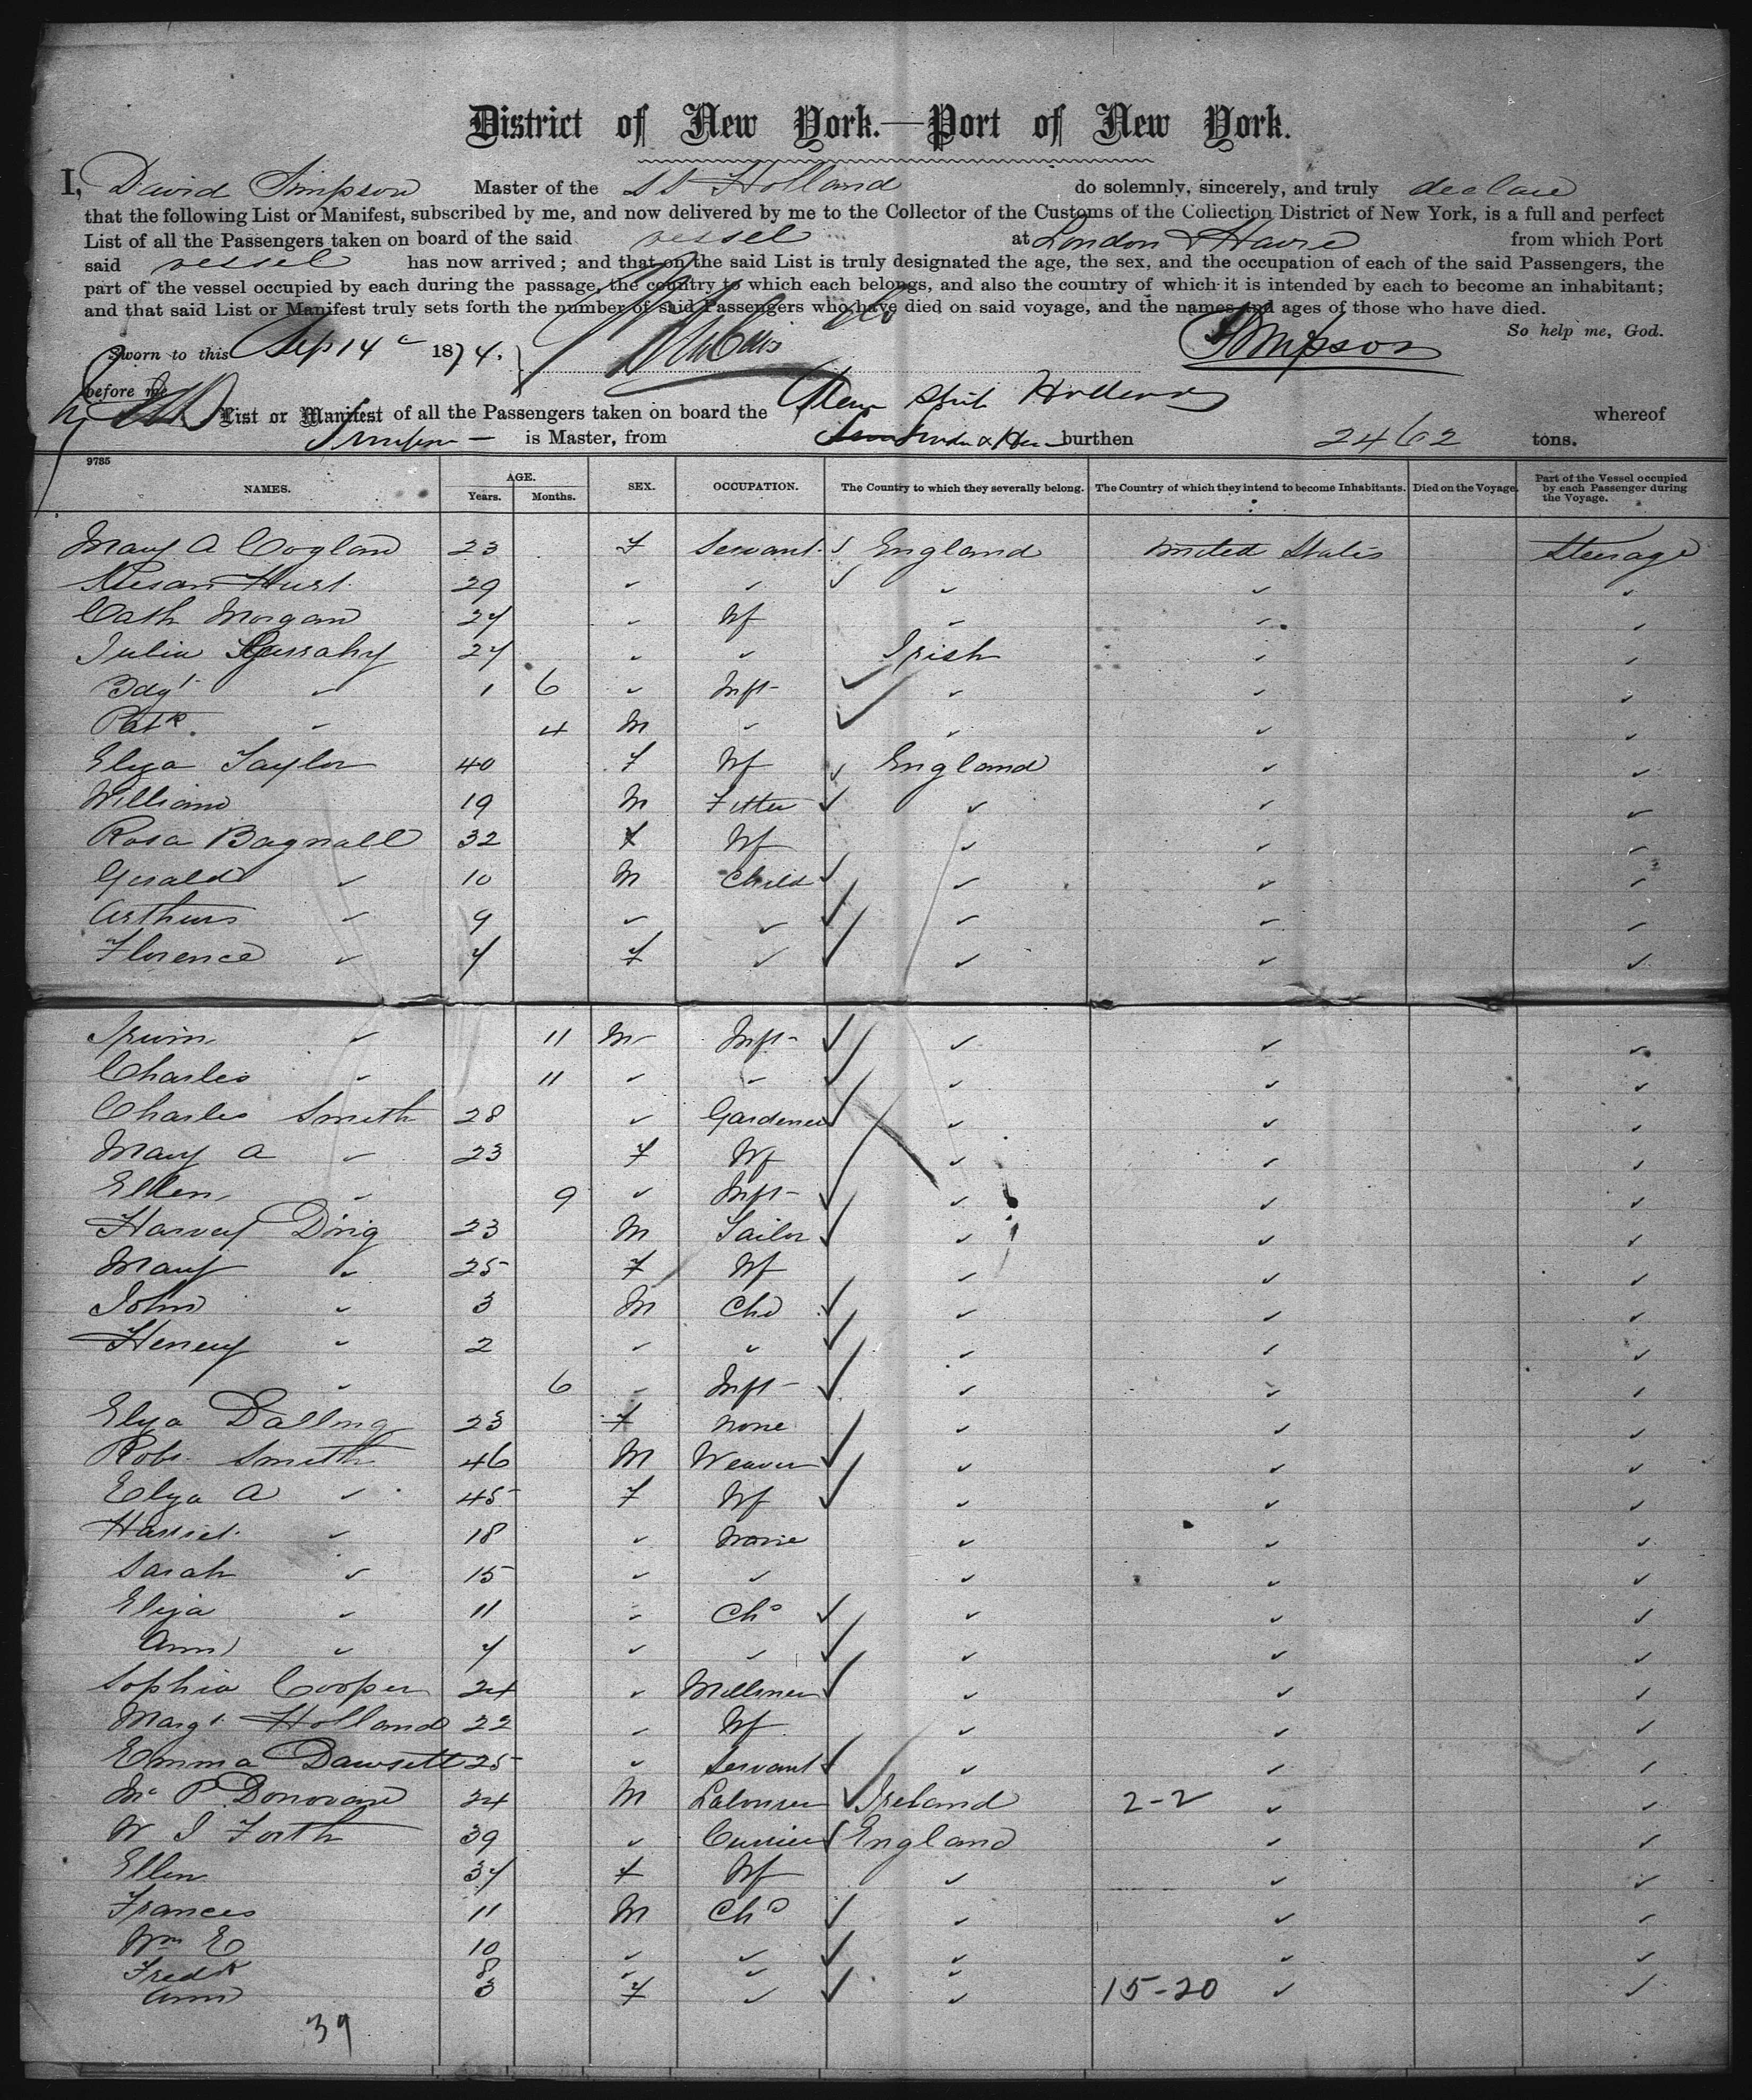 District of New York.—Port of New York.
I, David Simpson Master of the SS Holland do solemnly, sincerely, and truly declare
that the following List or Manifest, subscribed by me, and now delivered by me to the Collector of the Customs of the Collection District of New York, is a full and perfect
List of all the Passengers taken on board of the said vessel at London & Havre from which Port
said vessel has now arrived; and that on the said List is truly designated the age, the sex, and the occupation of each of the said Passengers, the
part of the vessel occupied by each during the passage, the country to which each belongs, and also the country of which it is intended by each to become an inhabitant;
and that said List or Manifest truly sets forth the number of said Passengers who have died on said voyage, and the names and ages of those who have died.
So help me, God.
Sworn to this Sep 14 1874. Simpson
before me
List or Manifest of all the Passengers taken on board the Steam Ship Holland whereof
Simpson is Master, from burthen 2462 tons.
9735
NAMES. AGE. Years. Months. SEX. OCCUPATION. The Country to which they severally belong. The Country of which they intend to become Inhabitants. Died on the Voyage. Part of the Vessel occupied by each Passenger during the Voyage.
Mary A Coglan 23 F Servant England United States Steerage
Susan Hurst 29 " " " " "
Cath Morgan 27 " Wf " " "
Julia 27 " " Irish " "
Bdgt " 1 6 " Inft " " "
Patk. " 4 M " " " "
Eliza Taylor 40 F Wf England " "
William 19 M Fitter " " "
Rosa Bagnall 32 F Wf " " "
Gerald " 10 M Child " " "
Arthur " 9 " " " " "
Florence " 7 F " " " "
Irwin " 11 M Inft " " "
Charles " 11 " " " " "
Charles Smith 28 " Gardener " " "
Mary A " 23 F Wf " " "
Ellen " 9 " Inft " " "
Harvey Dring 23 M Tailor " " "
Mary " 25 F Wf " " "
John " 3 M Chd " " "
Henery " 2 " " " " "
" 6 " Inft " " "
Elza Dalling 23 F None " " "
Robt Smith 46 M Weaver " " "
Elza A " 45 F Wf " " "
Harriet " 18 " None " " "
Sarah " 15 " " " " "
Eliza " 11 " Chd " " "
Ann " 7 " " " " "
Sophia Cooper 24 " Milliner " " "
Margt Holland 22 " Wf " " "
Emma Dawsett 25 " Servant " " "
Mc P. Donovan 24 M Labourer Ireland 2-2 " "
W J Forth 39 " Currier England " "
Ellen 37 F Wf " " "
Frances 11 M Chd " " "
Wm E 10 " " " " "
Fredk 8 " " "
Ann 3 F " " 15-20 " "
39